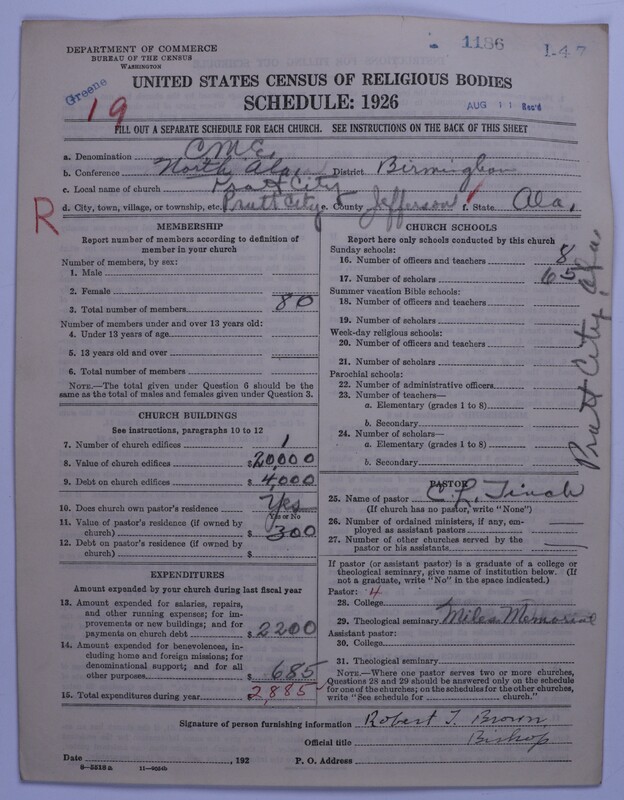 DEPARTMENT OF COMMERCE
BUREAU OF THE CENSUS
WASHINGTON
1186
1-47
Greene
19
UNITED STATES CENSUS OF RELIGIOUS BODIES
SCHEDULE: 1926
AUG 11 Rec'd
FILL OUT A SEPARATE SCHEDULE FOR EACH CHURCH. SEE INSTRUCTIONS ON THE BACK OF THIS SHEET
a. Denomination C.M.E.
b. Conference North Ala. District Birmingham
c. Local name of church Pratt City
d. City, town, village, or township, etc. Pratt City e. County Jefferson f. State Ala.
R
MEMBERSHIP
Report number of members according to definition of
member in your church
Number of members, by sex:
1. Male
2. Female
3. Total number of members 80
Number of members under and over 13 years old:
4. Under 13 years of age
5. 13 years old and over
6. Total number of members
NOTE.—The total given under Question 6 should be
same as the total of males and females given under Question 3.
CHURCH BUILDINGS
See instructions, paragraphs 10 to 12
7. Number of church edifices 1
8. Value of church edifices $20,000
9. Debt on church edifices $4,000
10. Does church own pastor's residence Yes
Yes or No
11. Value of pastor's residence (if owned by
church) $300
12. Debt on pastor's residence (if owned by
church) $
EXPENDITURES
Amount expended by your church during last fiscal year
13. Amount expended for salaries, repairs,
and other running expenses; for im-
provements or new buildings; and for
payments on church debt $2200
14. Amount expended for benevolences,
including home and foreign missions; for
denominational support; and for all
other purposes $685
15. Total expenditures during year $2,885
CHURCH SCHOOLS
Report here only schools conducted by this church
Sunday schools:
16. Number of officers and teachers 8
17. Number of scholars 65
Summer vacation Bible schools:
18. Number of officers and teachers
19. Number of scholars
Week-day religious schools:
20. Number of officers and teachers
21. Number of scholars
Parochial schools:
22. Number of administrative officers
23. Number of teachers—
a. Elementary (grades 1 to 8)
b. Secondary
24. Number of scholars—
a. Elementary (grades 1 to 8)
b. Secondary
Pratt City, Ala.
PASTOR
25. Name of pastor C. L. Tinch
(If church has no pastor, write "None")
26. Number of ordained ministers, if any, em-
ployed as assistant pastors
27. Number of other churches served by the
pastor or his assistants
If pastor (or assistant pastor) is a graduate of a college or
theological seminary, give name of institution below. (If
not a graduate, write "No" in the space indicated.)
Pastor: 4
28. College
29. Theological seminary Miles Memorial
Assistant pastor:
30. College
31. Theological seminary
NOTE.—Where one pastor serves two or more churches,
Questions 28 and 29 should be answered only on the schedule
for one of the churches; on the schedules for the other churches,
write "See schedule for church."
Signature of person furnishing information Robert T. Brown
Official title Bishop
Date , 192 P. O. Address